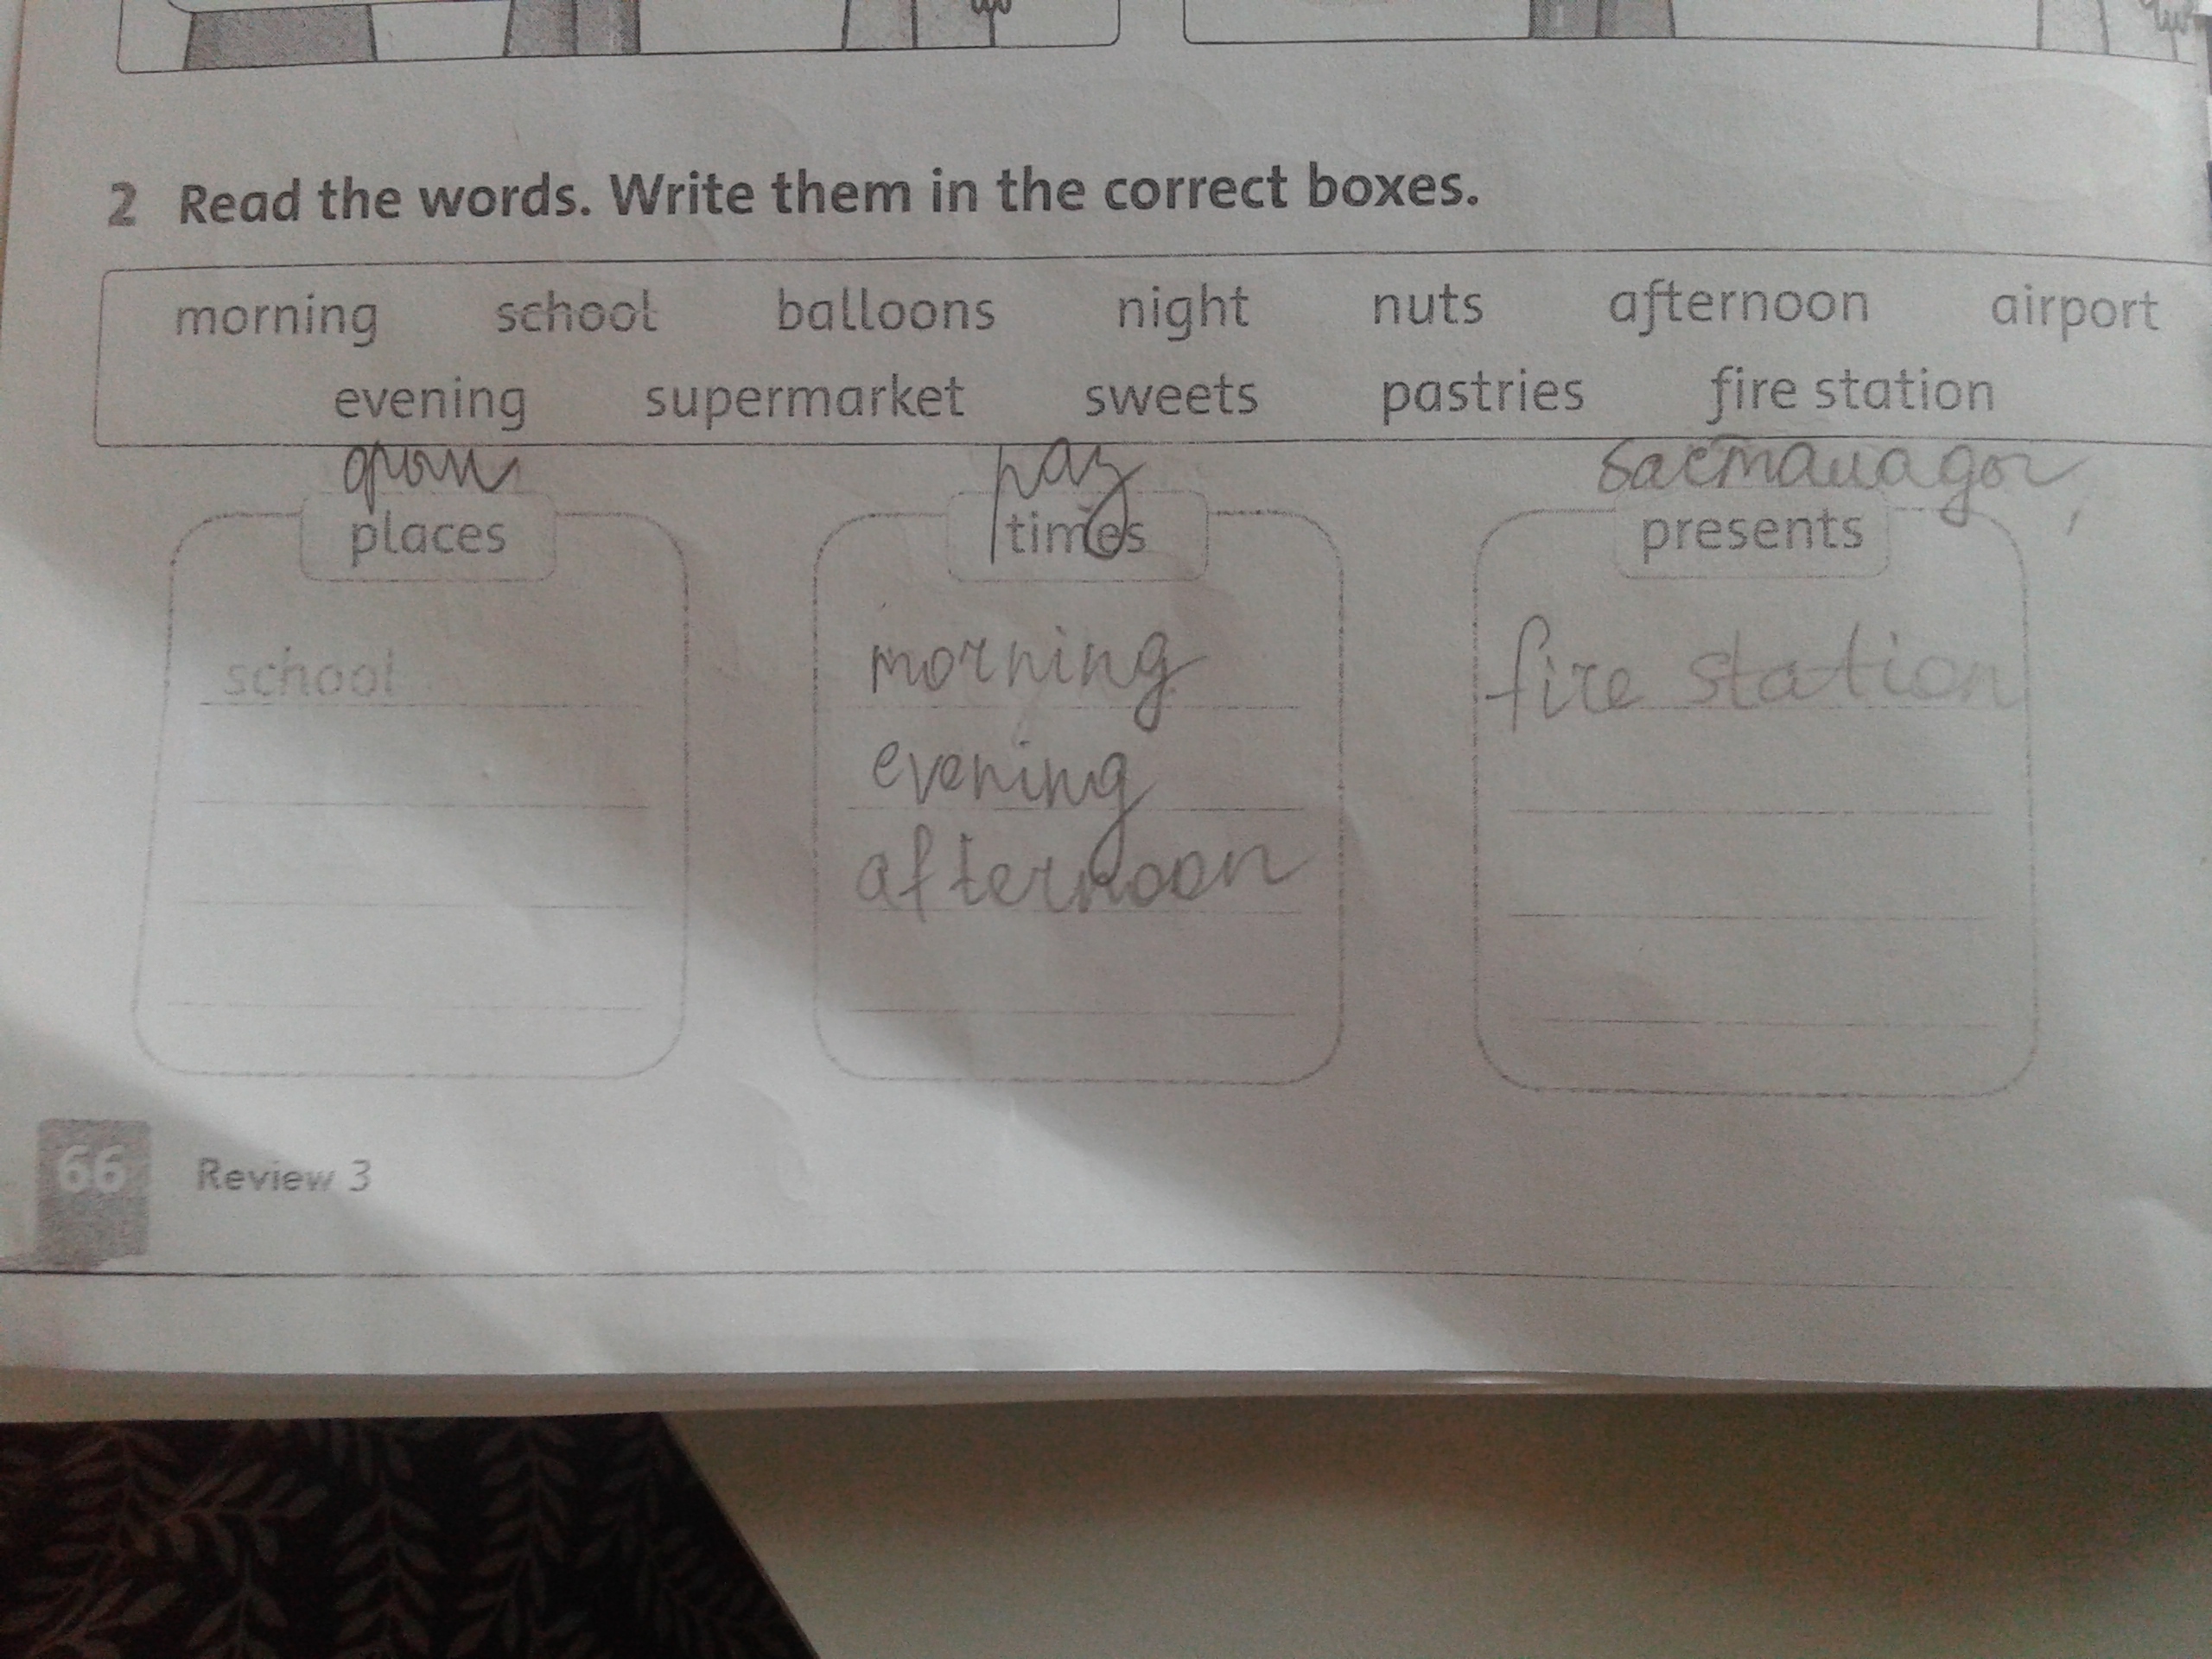 2 Read the words. Write them in the correct boxes.
morning school balloons night nuts afternoon airport
evening supermarket sweets pastries fire station
раз
places times presents
school morning fire station
evening
afternoon
66 Review 3